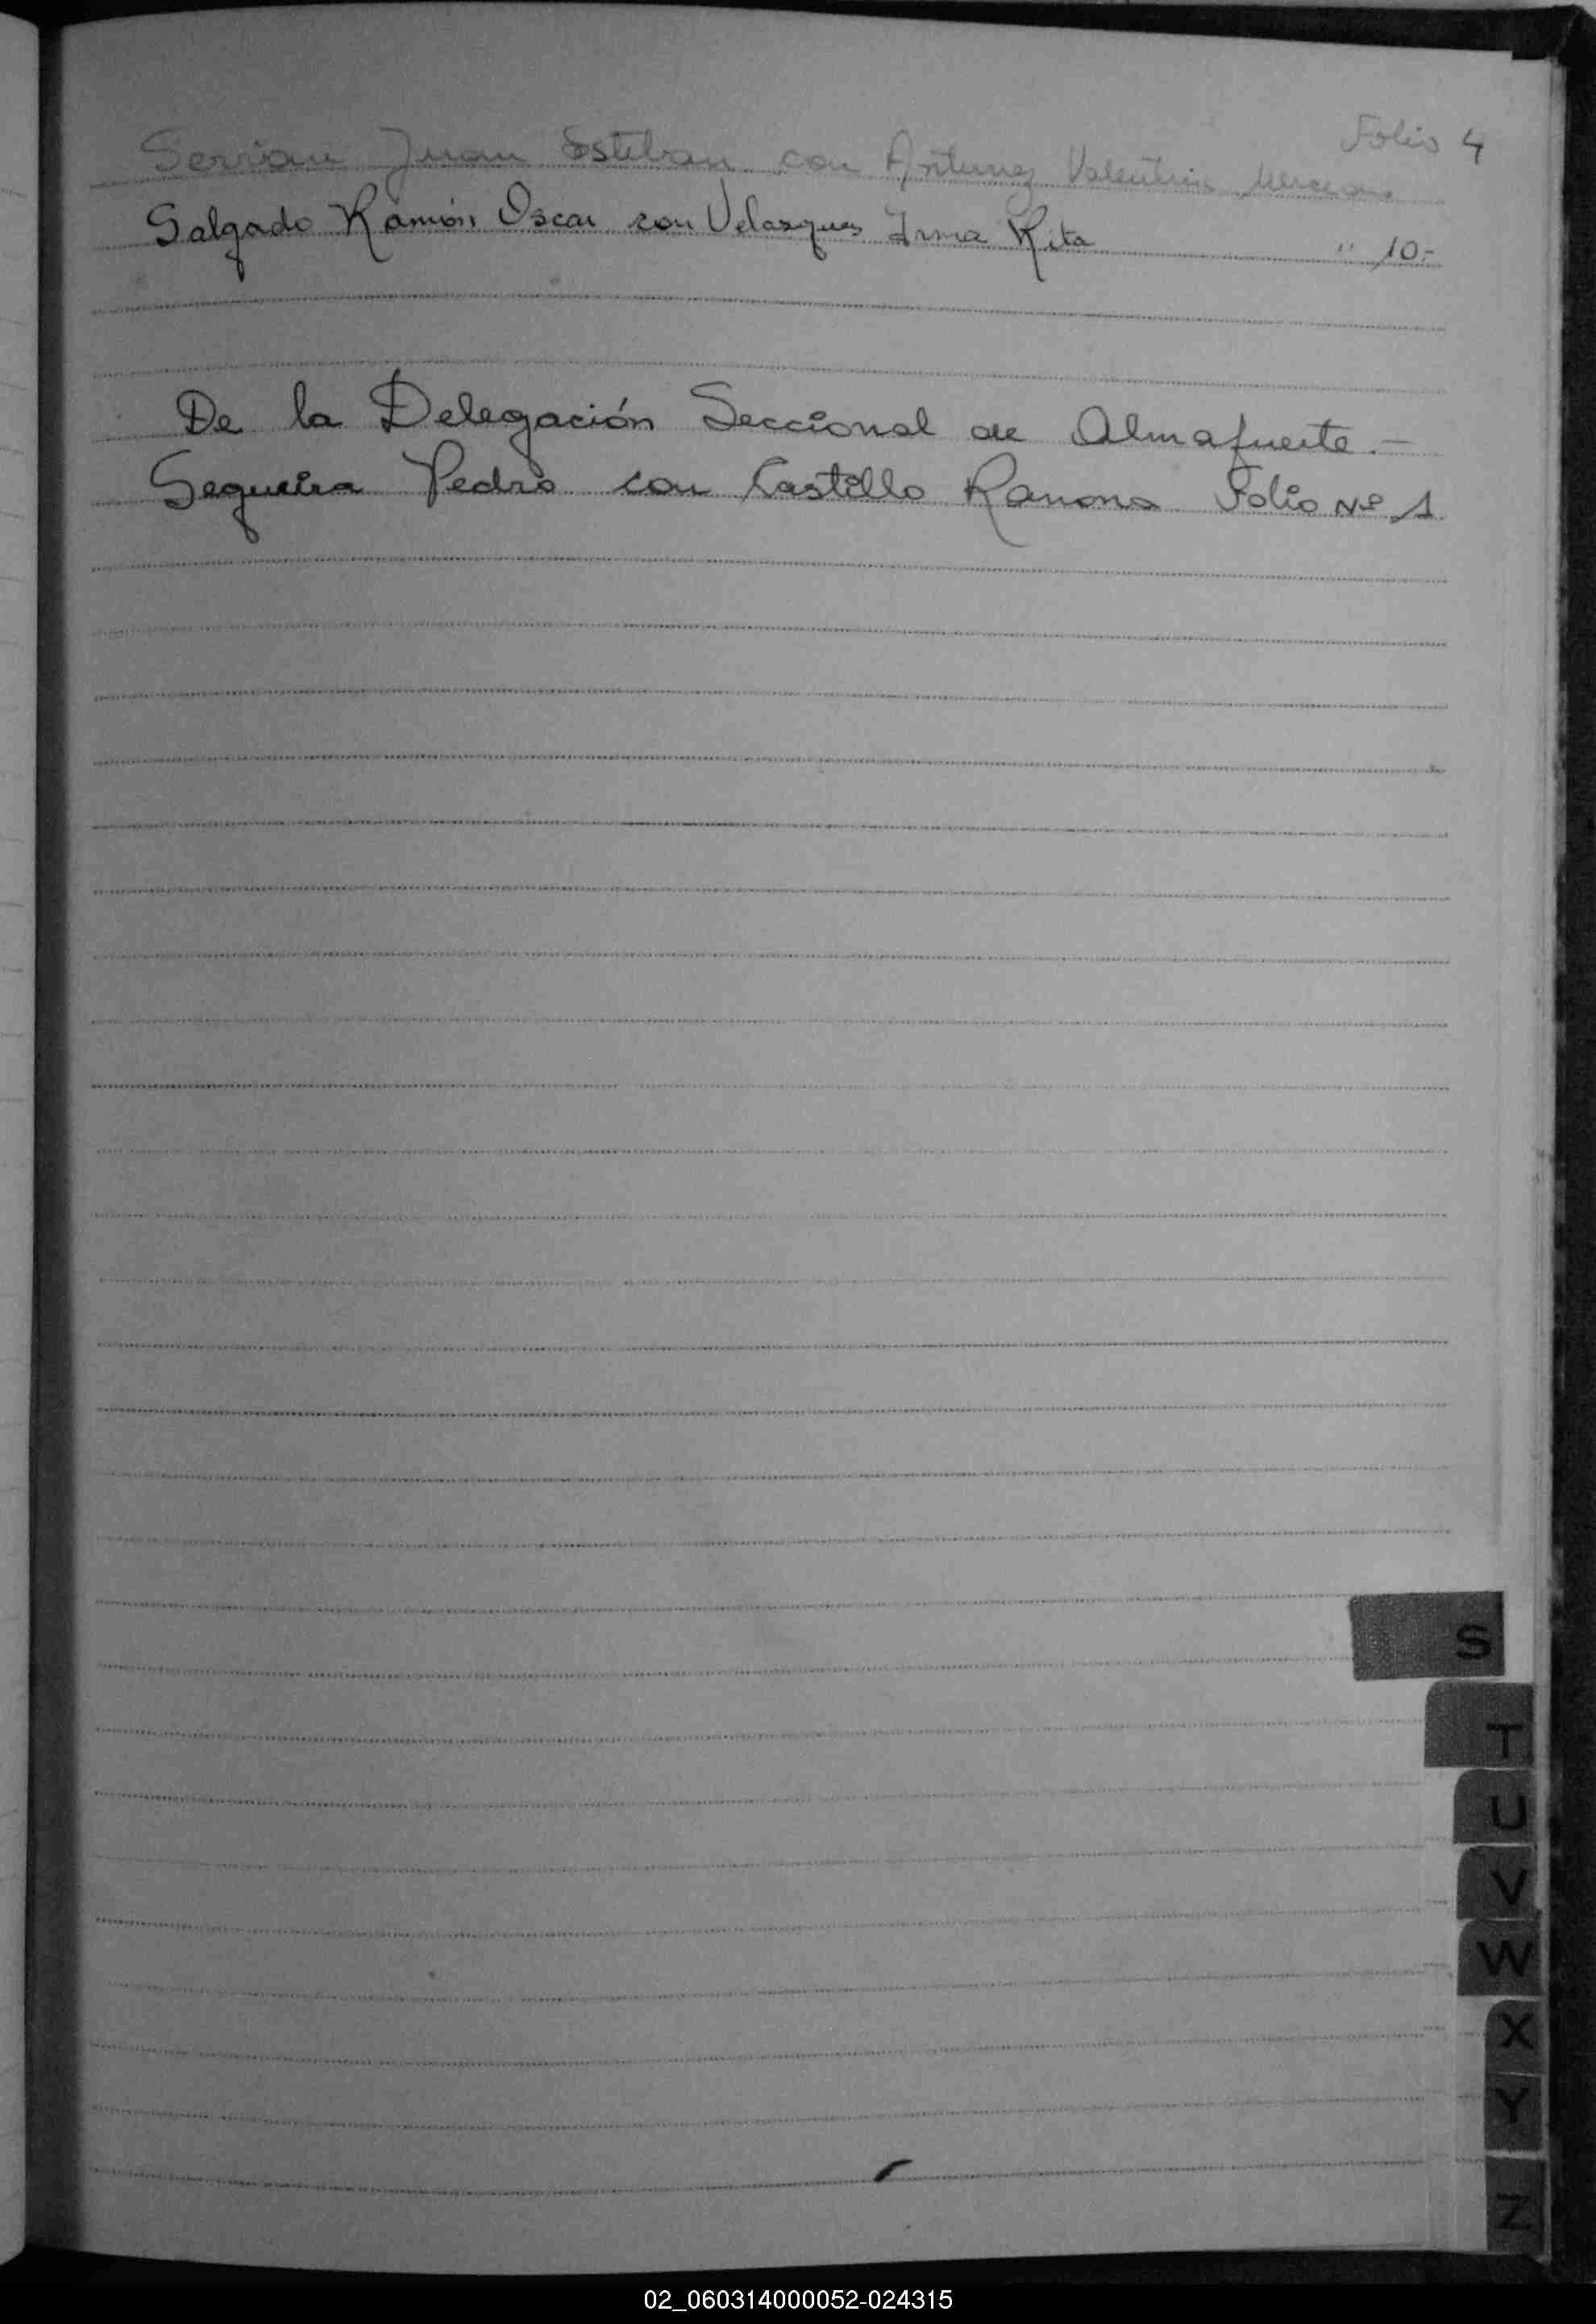 Serrian Juan Esteban con Antunez Valentina Folio 4
Salgado Ramón Oscar con Velasques Irma Rita " 10.-
De la Delegación Seccional de Almafuerte.-
Segueira Pedro con Castillo Ramona Folio Nº 1
S
T
U
V
W
X
Y
Z
02_060314000052-024315